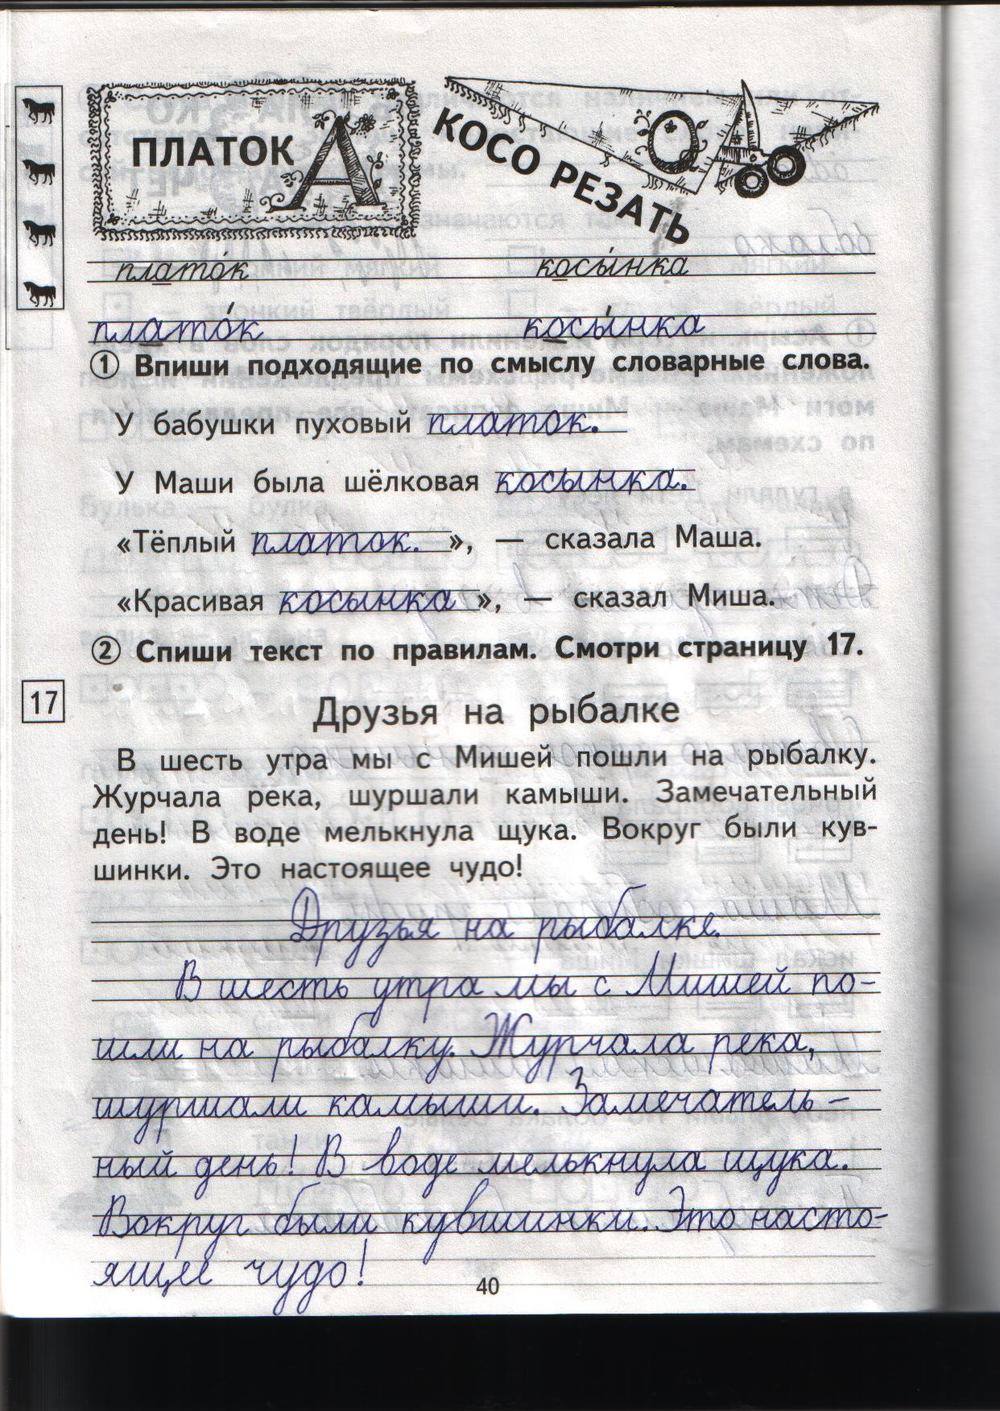 ПЛАТОК А
КОСО РЕЗАТЬ О
плато́к косы́нка
плато́к косы́нка
① Впиши подходящие по смыслу словарные слова.
У бабушки пуховый платок.
У Маши была шёлковая косынка.
«Тёплый платок. », — сказала Маша.
«Красивая косынка », — сказал Миша.
② Спиши текст по правилам. Смотри страницу 17.
17
Друзья на рыбалке
В шесть утра мы с Мишей пошли на рыбалку.
Журчала река, шуршали камыши. Замечательный
день! В воде мелькнула щука. Вокруг были кув-
шинки. Это настоящее чудо!
Друзья на рыбалке.
В шесть утра мы с Мишей по-
шли на рыбалку. Журчала река,
шуршали камыши. Замечатель-
ный день! В воде мелькнула щука.
Вокруг были кувшинки. Это насто-
ящее чудо!
40